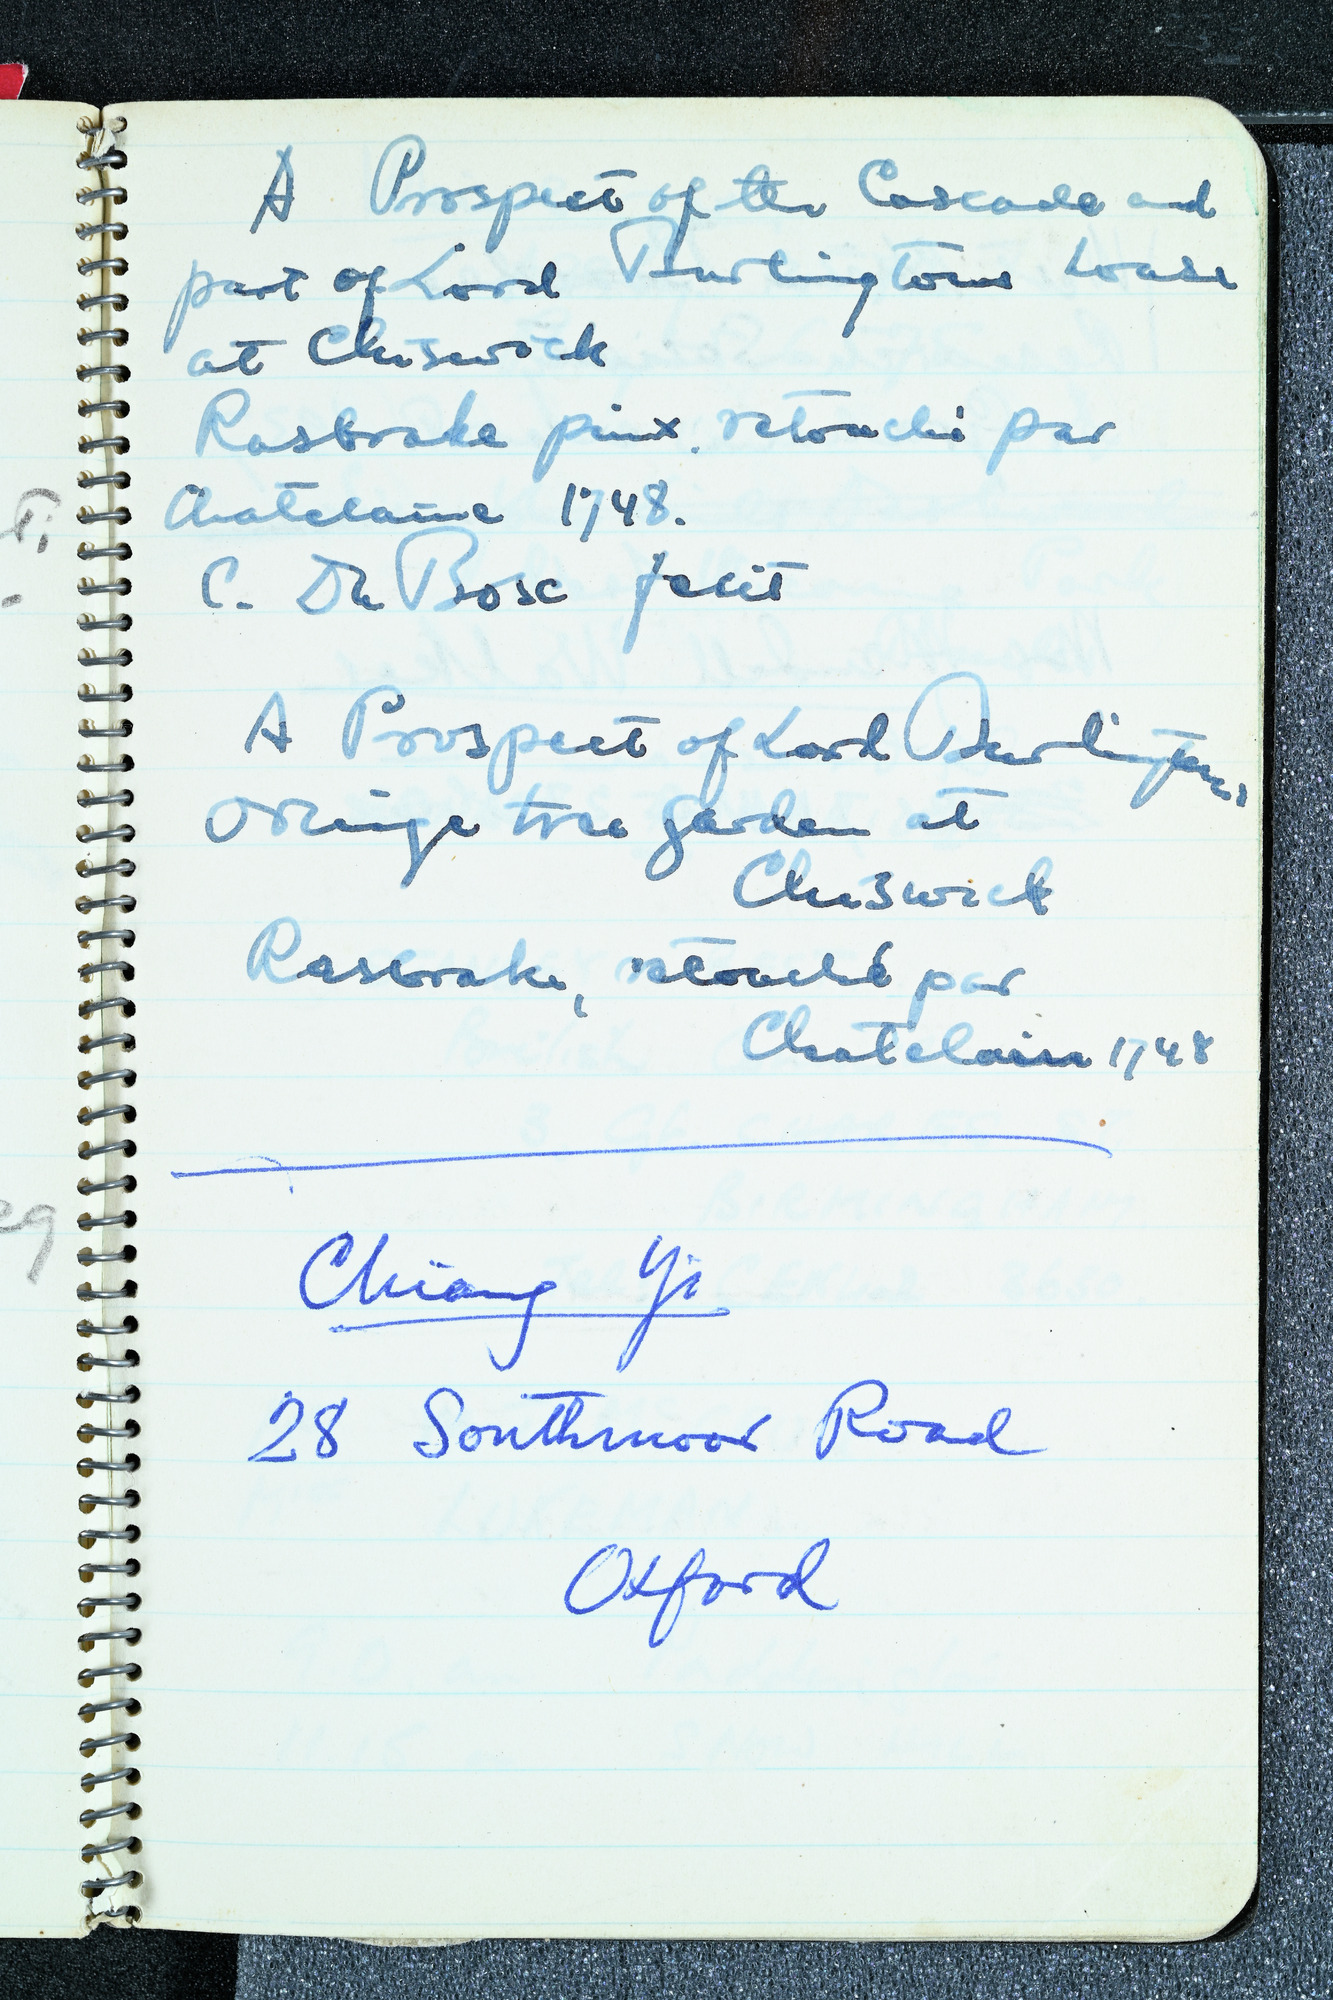 A Prospect of the Cascade and
part of Lord Burlingtons house
at Chiswick
Rasbrake pinx. retouché par
Chatelaine 1748.
C. Du Bosc fecit
A Prospect of Lord Burlingtons
Oringe tree garden at
Chiswick
Rasbrake, retouché par
Chatelain 1748
Chiang Yi
28 Southmoor Road
Oxford